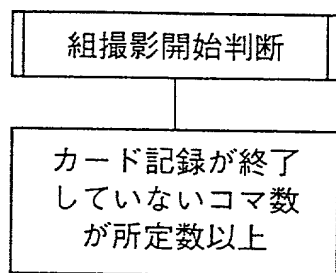 組撮影開始判断
カード記録が終了
していないコマ数
が所定数以上